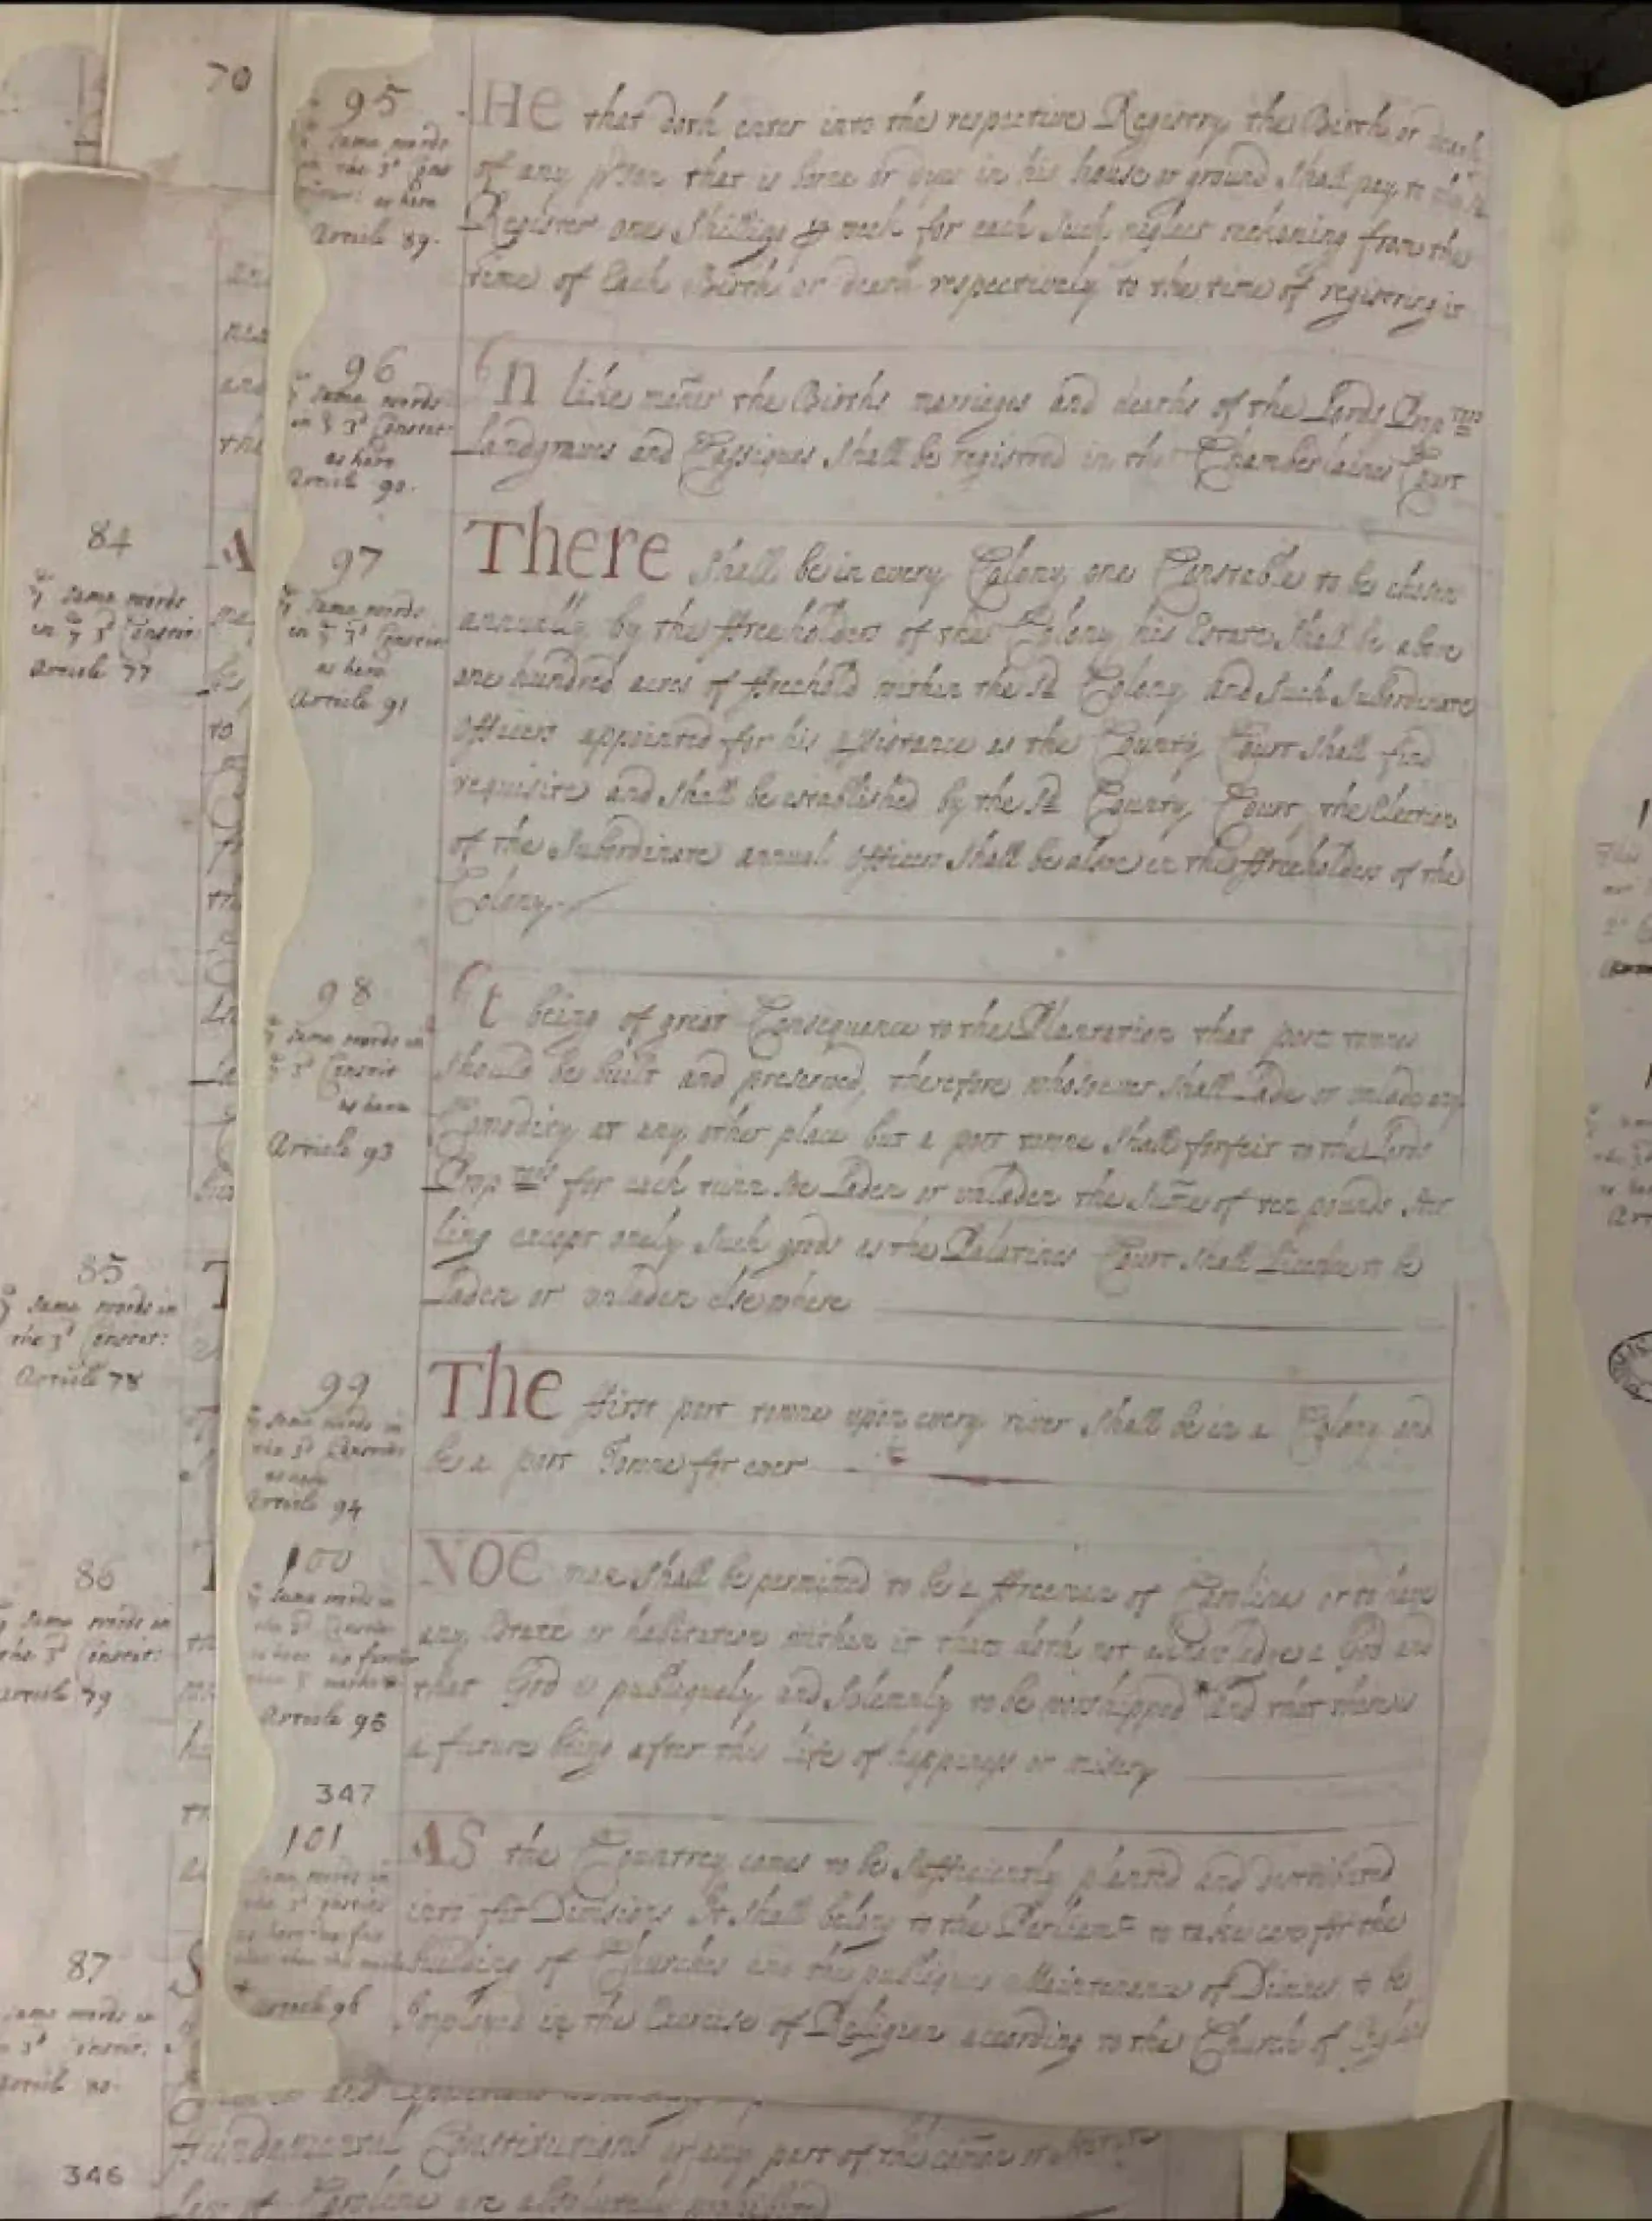 70
95
same words
in the 3d Cons
as here
Article 89.
HE that doth enter into the respective Registry the Birth or death
of any pson that is borne or dyes in his house or ground shall pay to the sd
Register one shilling p week for each such neglect reckoning from the
time of Each Birth or death respectively to the time of registring it
96
ye same words
in ye 3d Constit:
as here
Article 90.
In like maner the Births marriages and deaths of the Lords Proptors
Landgraves and Cassiques shall be registred in the Chamberlaines Court
97
ye same words
in ye 3d Constit
as here
Article 91
There shall be in every Colony one Constable to be chosen
annually by the ffreeholders of the Colony his Estate shall be above
one hundred acres of ffreehold within the sd Colony and such subordinate
officers appointed for his Assistance as the County Court shall find
requisite and shall be established by the sd County Court, the Election
of the subordinate annual officers shall be alsoe in the ffreeholders of the
Colony
98
ye same words in
ye 3d Constit
as here
Article 93
It being of great Consequence to the Plantation that port townes
should be built and preserved, therefore whosoever shall Lade or unlade any
Comodity at any other place but a port towne shall forfeit to the Lords
Proptors for each tunn soe Laden or unladen the sume of ten pounds ster
ling except onely such goods as the Palatines Court shall Licence to be
Laden or unladen elsewhere
99
ye same words in
the 3d Constit
as here
Article 94
The first port towne upon every river shall be in a Colony and
be a port Towne for ever
100
ye same words in
the 3d Constit
as here no further
than ye marke
Article 95
NOE man shall be permitted to be a ffreeman of Carolina or to have
any Estate or habitation within it that doth not acknowledge a God and
that God is publiquely and solemnly to be worshipped * and that there is
a future being after this life of happiness or misery
347
101
same words in
the 3d Constit
as here
Article 96
AS the Countrey comes to be sufficiently planted and distributed
into fitt Divisions It shall belong to the Parliamt to take care for the
building of Churches and the publique Maintenance of Divines to be
Imployed in the Exercise of Religion according to the Church of England
84
ye same words
in ye 3d Constit:
Article 77
85
ye same words in
the 3d Constit:
Article 78
86
same words in
the 3d Constit:
Article 79
87
same words in
3d Constit:
Article 80.
346
Fundamental Constitutions or any part of the comon or Statute
law of Carolina are absolutely prohibited